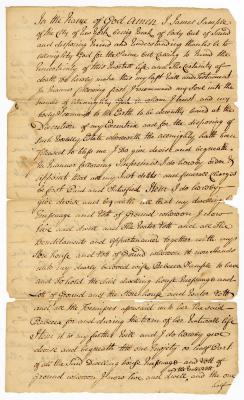 In the Name of God Amen I James Sample
of the City of New York being Weak of body but of Sound
and disposing Mind and Understanding thanks be to
almighty God for the Same but Calling to Mind the
uncertainty of this Mortal life and the Certainty of
death do hereby make this my last Will and Testament
in manner following first I recommend my Soul into the
hands of Almighty God to whom I trust and my
body I commend to the Earth to be decently buried at the
Discretion of my Executors and for the disposing of
such Worldly Estate wherewith the almighty hath been
Pleased to bless me I do give devise and bequeath
in manner following Imprimis I do hereby order &
appoint that all my Just debts and funeral Charges
be first Paid and Satisfied Item I do hereby
give devise and bequeath all that my dwelling
Messuage and Lott of Ground whereon I now
live and dwell and the and all the
and appurtenances together with my
Store house and Lott of Ground whereon it now stands
unto my dearly beloved wife Rebecca Sample to have
and to hold the said dwelling house Messuage and
Lott of Ground and the Store house and Lott
and all the Premises aforesaid unto her the said
Rebecca for and during the term of her Natural life
Item it is my further Will and I do hereby give
devise and bequeath the one Moiety or half Part
of all the Said Dwelling house Messuage and Lott of
Ground whereon I now live and dwell, and the one
half